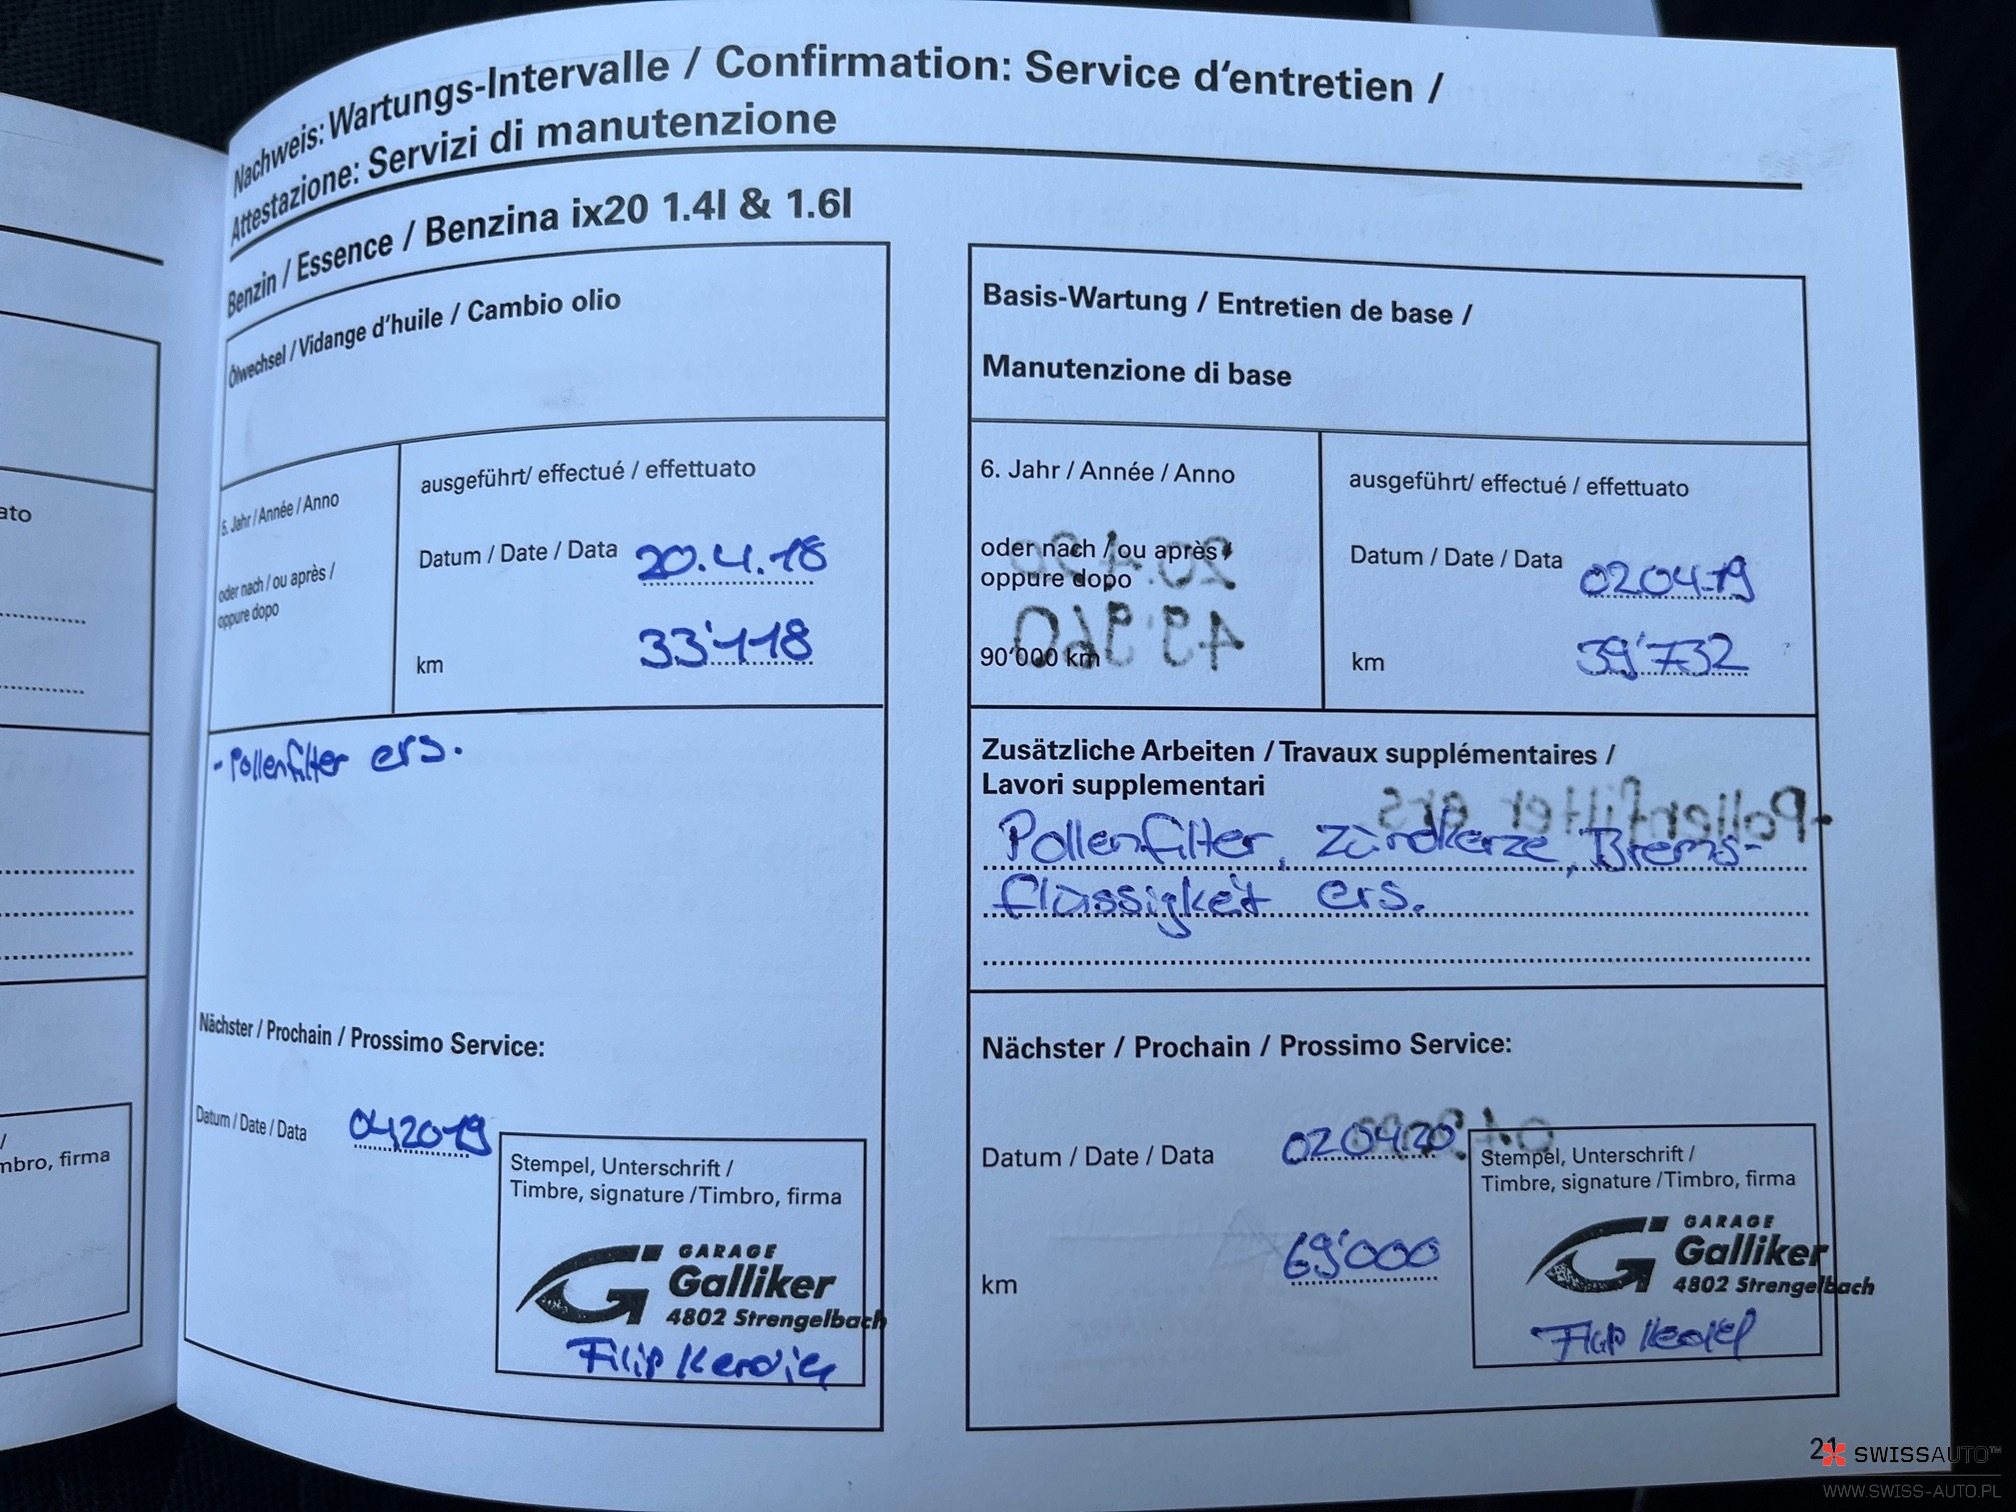 Nachweis: Wartungs-Intervalle / Confirmation: Service d'entretien /
Attestazione: Servizi di manutenzione
Benzin / Essence / Benzina ix20 1.4l & 1.6l
Ölwechsel / Vidange d'huile / Cambio olio
5. Jahr / Année / Anno
oder nach / ou après /
oppure dopo
ausgeführt/ effectué / effettuato
Datum / Date / Data 20.4.18
km 33'118
- Pollenfilter ers.
Nächster / Prochain / Prossimo Service:
Datum / Date / Data 042019
Stempel, Unterschrift /
Timbre, signature / Timbro, firma
GARAGE
Galliker
4802 Strengelbach
Filip
Basis-Wartung / Entretien de base /
Manutenzione di base
6. Jahr / Année / Anno
oder nach / ou après /
oppure dopo
90'000 km
ausgeführt/ effectué / effettuato
Datum / Date / Data 02.04.19
km 39'732
Zusätzliche Arbeiten / Travaux supplémentaires /
Lavori supplementari
Pollenfilter, Zündkerze, Brems-
flüssigkeit ers.
Nächster / Prochain / Prossimo Service:
Datum / Date / Data 02.04.20
km 69'000
Stempel, Unterschrift /
Timbre, signature / Timbro, firma
GARAGE
Galliker
4802 Strengelbach
Filip
ato
/
mbro, firma
21
SWISSAUTO™
WWW.SWISS-AUTO.PL